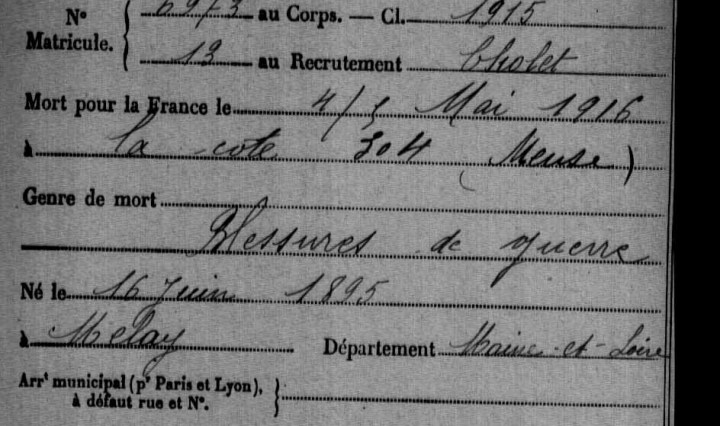 N° Matricule.
6973 au Corps. — Cl. 1915
13 au Recrutement Cholet
Mort pour la France le 4/5 Mai 1916
à la cote 304 (Meuse)
Genre de mort
Blessures de guerre
Né le 16 Juin 1895
à Melay Département Maine-et-Loire
Arrt municipal (pr Paris et Lyon),
à défaut rue et N°.